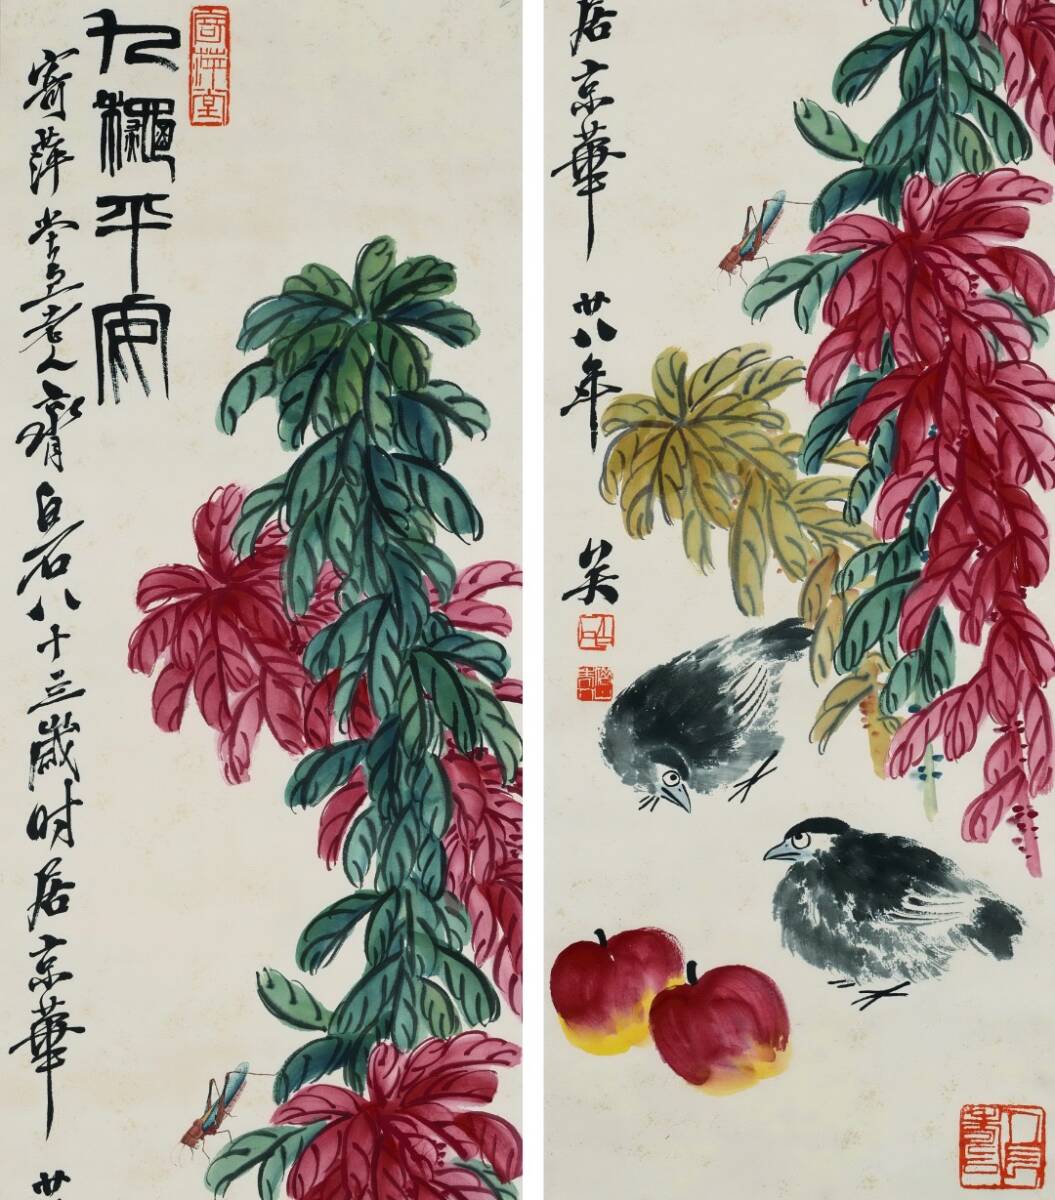 寄萍堂
九穐平安
寄萍堂上老人齊白石八十三歲时居京華廿
居京華廿八年矣
人長壽